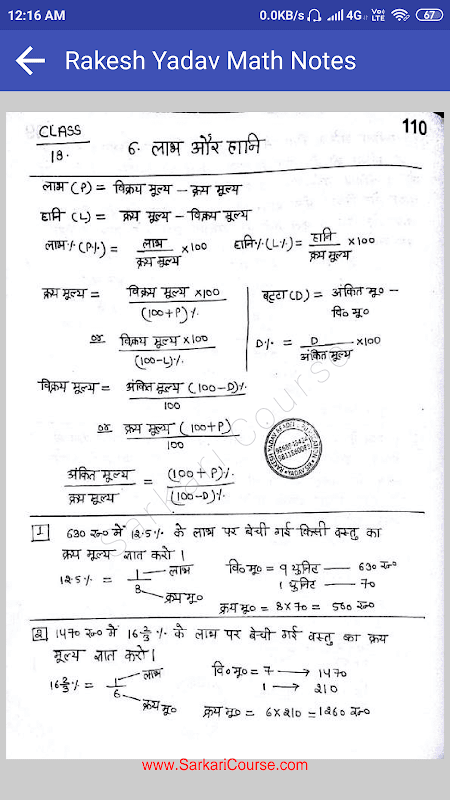 12:16 AM 0.0KB/s 4G VoLTE 67
Rakesh Yadav Math Notes
CLASS
18.
110
6. लाभ और हानि
लाभ (P) = विक्रय मूल्य – क्रय मूल्य
हानि (L) = क्रय मूल्य – विक्रय मूल्य
लाभ% (P%) = लाभ/क्रय मूल्य ×100 हानि% (L%) = हानि/क्रय मूल्य ×100
क्रय मूल्य = विक्रय मूल्य ×100/(100+P)%
or विक्रय मूल्य ×100/(100-L)%
बट्टा (D.) = अंकित मू० –
वि० मू०
D% = D/अंकित मूल्य ×100
विक्रय मूल्य = अंकित मूल्य (100-D)%/100
or क्रय मूल्य (100+P)/100
अंकित मूल्य/क्रय मूल्य = (100+P)%/(100-D)%
Sarkari Course
1 630 रू० में 12.5% के लाभ पर बेची गई किसी वस्तु का
क्रय मूल्य ज्ञात करो।
12.5% = 1/8 लाभ क्रय मू०
वि० मू० = 9 युनिट → 630 रू०
1 युनिट → 70
क्रय मू० = 8×70 = 560 रू०
2 1470 रू० में 16 2/3 % के लाभ पर बेची गई वस्तु का क्रय
मूल्य ज्ञात करो।
16 2/3 % = 1/6 लाभ क्रय मू०
वि० मू० = 7 → 1470
1 → 210
क्रय मू० = 6×210 = 1260 रू०
www.SarkariCourse.com